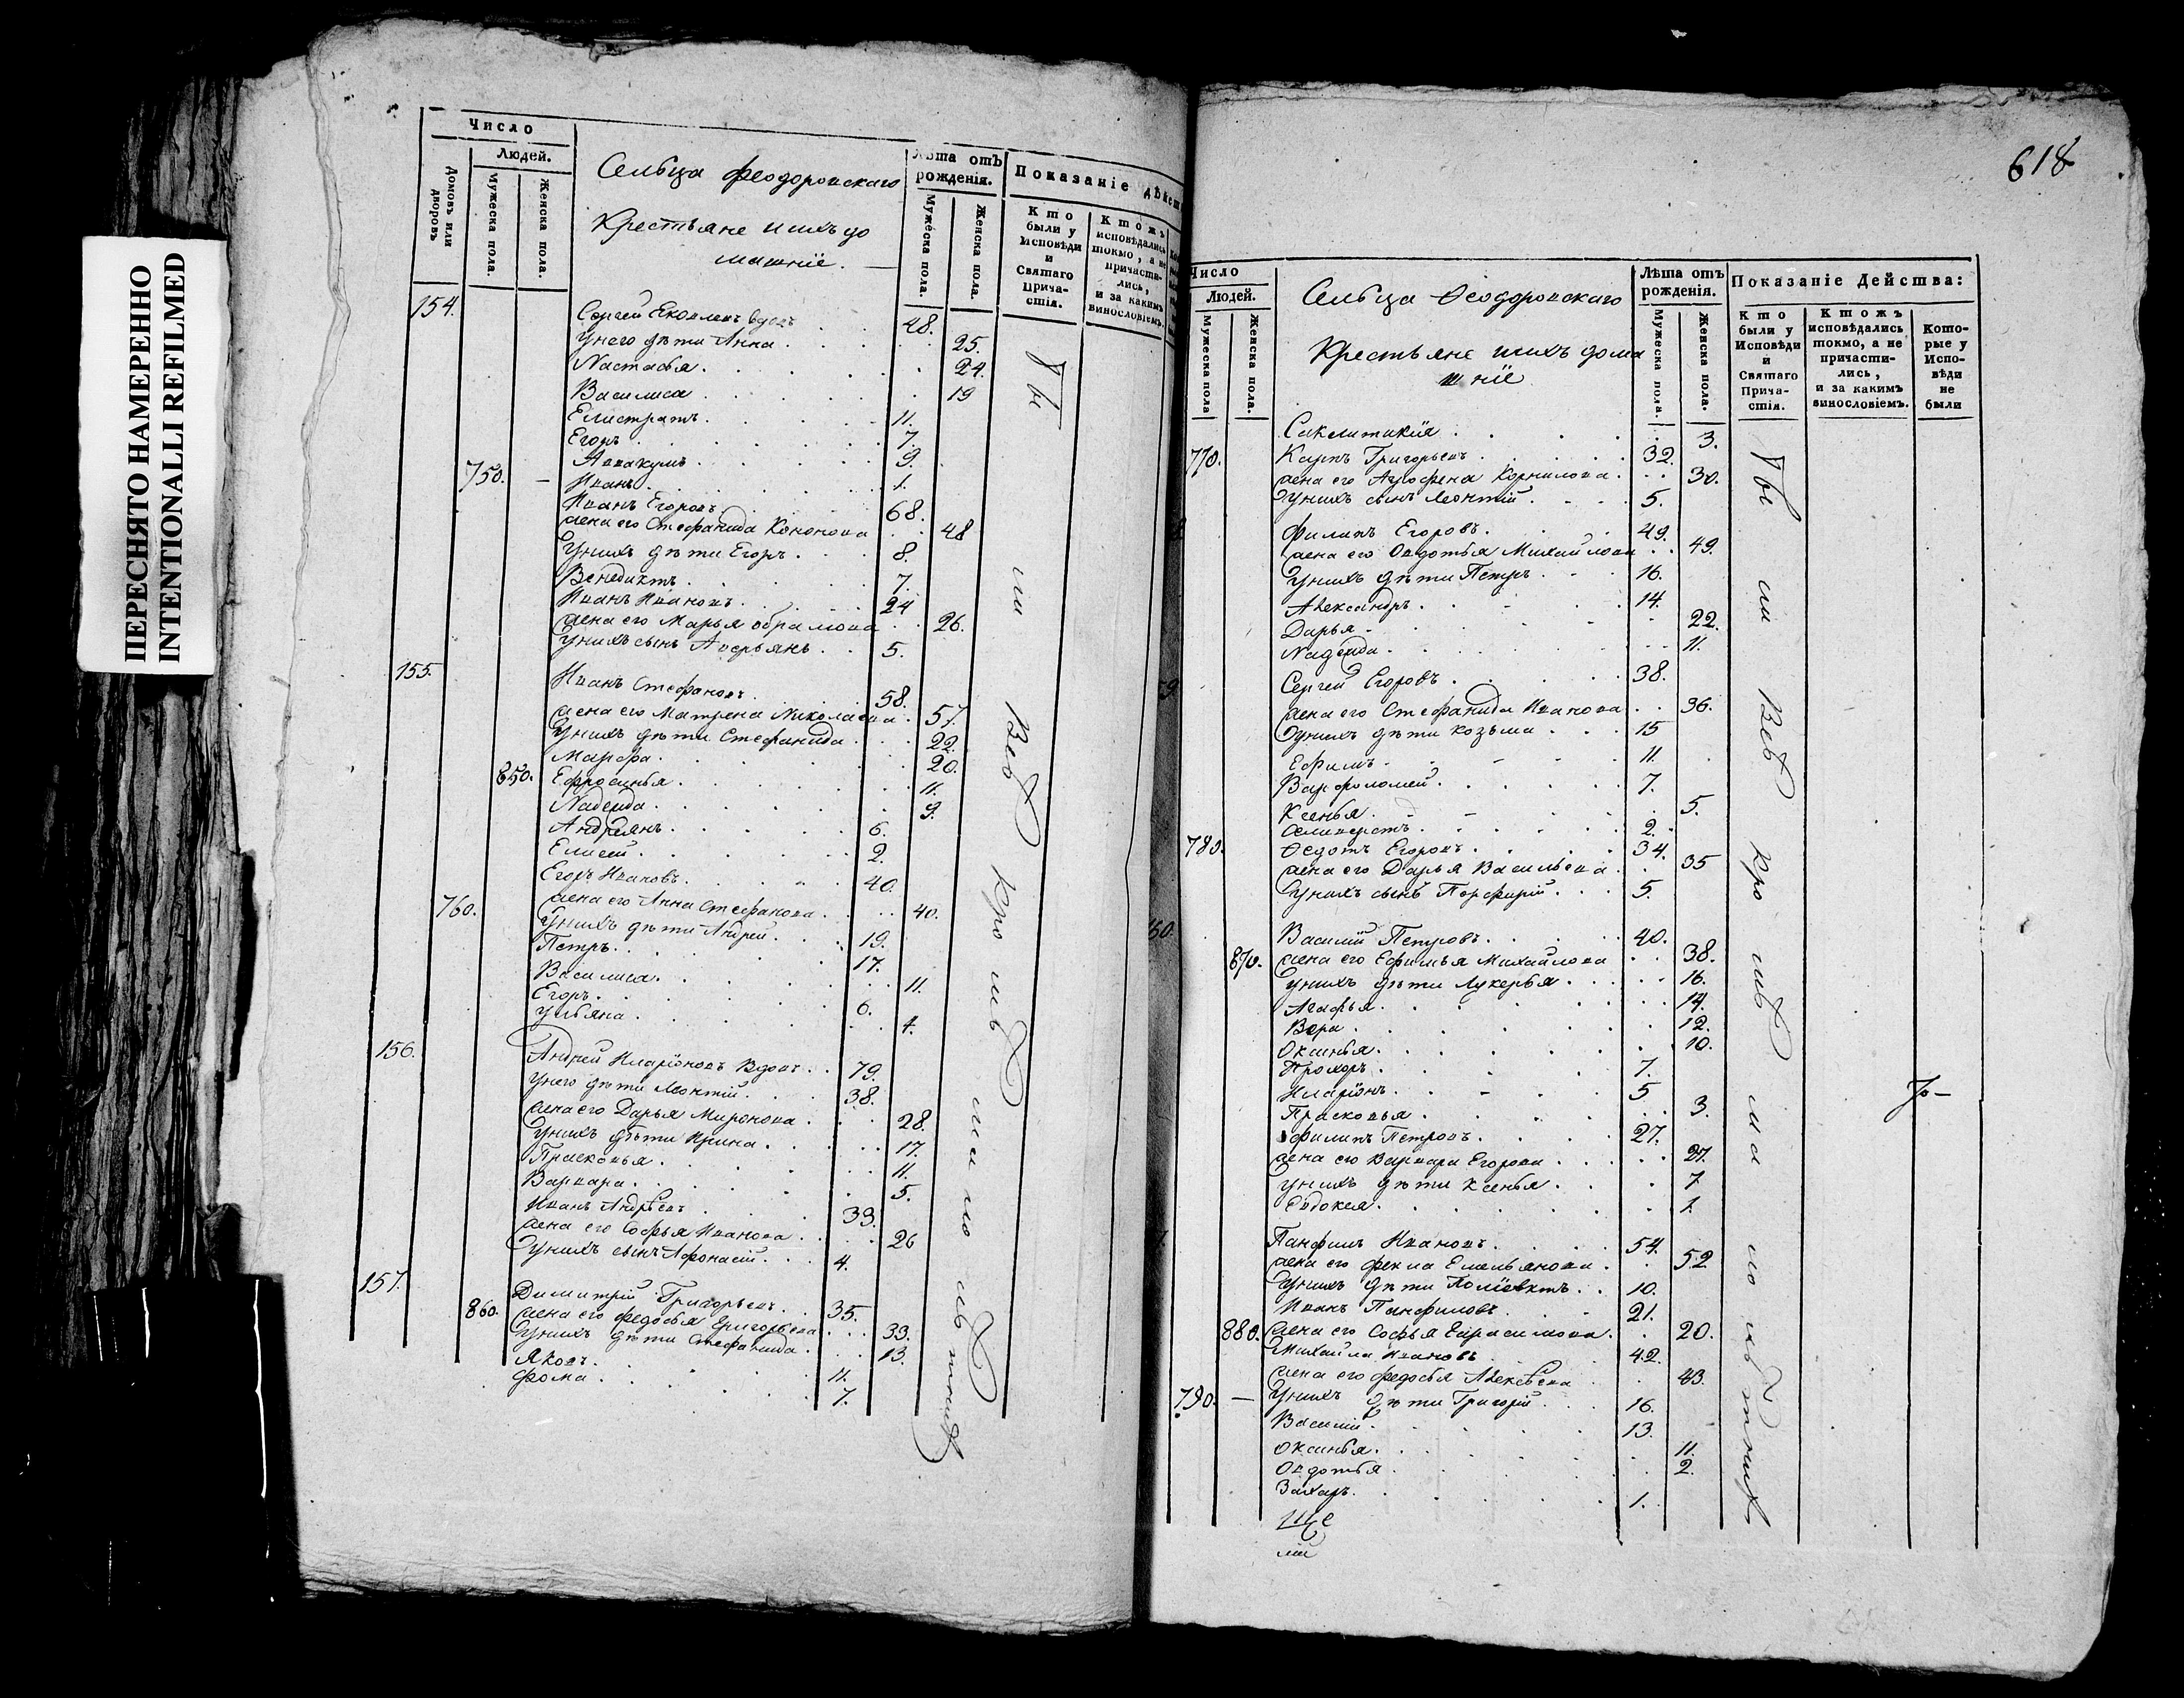 ПЕРЕСНЯТО НАМЕРЕННО
INTENTIONALLI REFILMED
Число
Людей.
Домовъ или дворовъ
Мужеска пола.
Женска пола.
Сельца феодоровскаго
Крестьяне и ихъ до
машніе.
Лѣта отъ рожденія.
Мужеска пола.
Женска пола.
Показаніе дѣйст
Кто были у Исповѣди и Святаго Прича-стія.
Ктожъ исповѣдались токмо, а не причасти-лись, и за какимъ винословіемъ.
154. Сергей Яковлевъ вдовъ 48.
У него дѣти Анна 25.
Настасья 24.
Василиса 19
Елистратъ 11.
Егоръ 7.
Аввакумъ 9.
750. Иванъ 1.
Иванъ Егоровъ 68.
жена его Стефанида Кононова 48
У нихъ дѣти Егоръ 8.
Венедиктъ 7.
Иванъ Ивановъ 24
жена его Марья обрамова 26.
У нихъ сынъ Аверьянъ 5.
155. Иванъ Стефановъ 58.
жена его Матрена Николаева 57.
У нихъ дѣти Стефанида 22.
Марфа 20.
850. Ефросинья 11.
Надежда 9.
Андреянъ 6.
Елисей 2.
Егоръ Ивановъ 40.
жена его Анна Стефанова 40.
760. У нихъ дѣти Андрей 19.
Петръ 17.
Василиса 11.
Егоръ 6.
Ульяна 4.
156. Андрей Иларіоновъ Вдовъ 79.
У него дѣти Леонтій 38.
жена его Дарья Миронова 28.
У нихъ дѣти Ирина 17.
Прасковья 11.
Варвара 5.
Иванъ Андрѣевъ 33.
жена его Софья Иванова 26
У нихъ сынъ Афонасій 4.
157. Димитрій Григорьевъ 35.
860. жена его федосья Григорьева 33.
У нихъ дѣти Стефанида 13.
Яковъ 11.
Фома 7.
618
Число
Людей.
Мужеска пола
Женска пола.
Сельца Ѳеодоровскаго
Крестьяне и ихъ дома
шніе
Лѣта отъ рожденія.
Мужеска пола.
Женска пола.
Показаніе Действа:
Кто были у Исповѣди и Святаго Прича-стія.
Ктожъ исповѣдались токмо, а не причасти-лись, и за какимъ винословіемъ.
Кото-рые у Испо-вѣди не были
Сиклитикія 3.
770. Карпъ Григорьевъ 32.
жена его Агрофена Корнилова 30.
У нихъ сынъ Леонтій 5.
филипъ Егоровъ 49.
жена его Овдотья Михайлова 49.
У нихъ дѣти Петръ 16.
Александръ 14.
Дарья 22.
Надежда 11.
Сергей Егоровъ 38.
жена его Стефанида Иванова 36.
У нихъ дѣти козьма 15
Ефимъ 11.
Варфоломей 7.
Ксенья 5.
Селиверстъ 2.
780. Ѳедотъ Егоровъ 34.
жена его Дарья Васильева 35
У нихъ сынъ Порфирій 5.
Василій Петровъ 40.
870. жена его Ефимья Михайлова 38.
У нихъ дѣти Лукерья 16.
Агафья 14.
Вера 12.
Оксинья 10.
Прохоръ 7.
Иларіонъ 5
Прасковья 3.
филипъ Петровъ 27.
жена его Варвара Егорова 27.
У нихъ дѣти Ксенья 7
Евдокея 1.
Панфилъ Ивановъ 54.
жена его фекла Емельянова 52
У нихъ дѣти Поліевктъ 10.
Иванъ Панфиловъ 21.
880. жена его Софья Герасимова 20.
Михайла Ивановъ 42.
жена его федосья Алексѣева 43.
790. У нихъ дѣти Григорій 16.
Василій 13.
Оксинья 11.
Овдотья 2.
Захаръ 1.